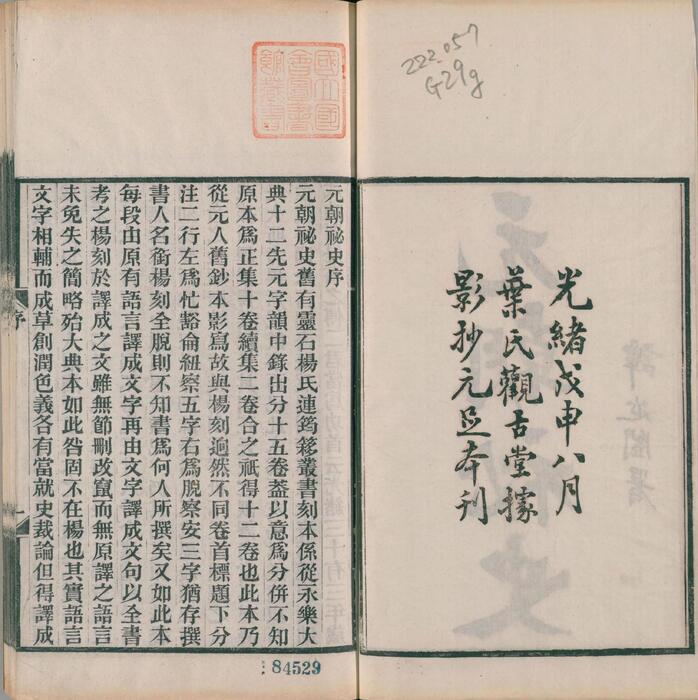 222.057
G29g
光緒戊申八月
葉氏觀古堂據
影抄元足本刊
國立國
會圖書
館藏書
元朝祕史序
元朝祕史舊有靈石楊氏連筠簃叢書刻本係從永樂大
典十二先元字韻中錄出分十五卷葢以意爲分併不知
原本爲正集十卷續集二卷合之祇得十二卷也此本乃
從元人舊鈔本影寫故與楊刻逈然不同卷首標題下分
注二行左爲忙豁侖紐察五字右爲脫察安三字猶存撰
書人名銜楊刻全脫則不知書爲何人所撰矣又如此本
每段由原有語言譯成文字再由文字譯成文句以全書
考之楊刻於譯成之文雖無節刪改竄而無原譯之語言
未免失之簡略殆大典本如此咎固不在楊也其實語言
文字相輔而成草創潤色義各有當就史裁論但得譯成
序
一
84529